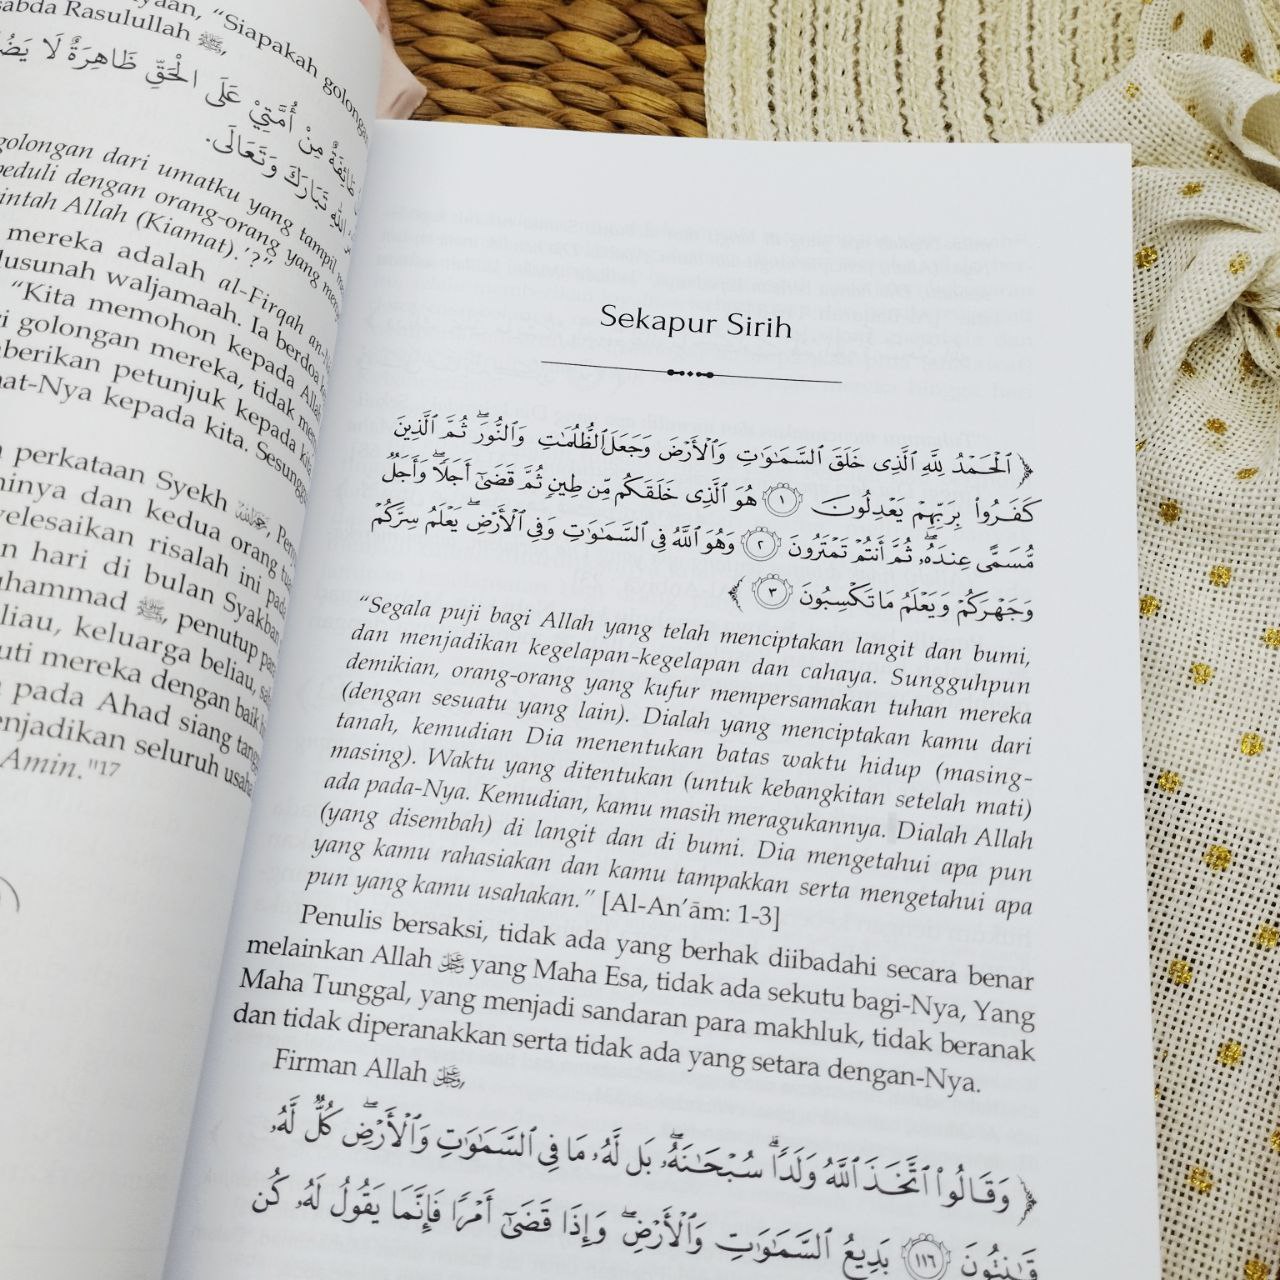 yaan, "Siapakah golongan
sabda Rasulullah ﷺ,
مِنْ أُمَّتِيْ عَلَى الْحَقِّ ظَاهِرَةٌ لَا
اللهِ تَبَارَكَ وَتَعَالَى.
golongan dari umatku yang tampil
peduli dengan orang-orang yang
intah Allah (Kiamat).'?"
mereka adalah al-Firqah
lusunah waljamaah. Ia berdoa
"Kita memohon kepada Allah
i golongan mereka, tidak
berikan petunjuk kepada
at-Nya kepada kita.
perkataan Syekh
inya dan kedua orang
yelesaikan risalah ini pada
n hari di bulan Syakban
uhammad ﷺ, penutup
liau, keluarga beliau,
uti mereka dengan baik
pada Ahad siang
enjadikan seluruh
Amin."17
Sekapur Sirih
﴿ ٱلْحَمْدُ لِلَّهِ ٱلَّذِى خَلَقَ ٱلسَّمَٰوَٰتِ وَٱلْأَرْضَ وَجَعَلَ ٱلظُّلُمَٰتِ وَٱلنُّورَ ۖ ثُمَّ ٱلَّذِينَ
كَفَرُوا۟ بِرَبِّهِمْ يَعْدِلُونَ ۝١ هُوَ ٱلَّذِى خَلَقَكُم مِّن طِينٍ ثُمَّ قَضَىٰٓ أَجَلًا ۖ وَأَجَلٌ
مُّسَمًّى عِندَهُۥ ۖ ثُمَّ أَنتُمْ تَمْتَرُونَ ۝٢ وَهُوَ ٱللَّهُ فِى ٱلسَّمَٰوَٰتِ وَفِى ٱلْأَرْضِ ۖ يَعْلَمُ سِرَّكُمْ
وَجَهْرَكُمْ وَيَعْلَمُ مَا تَكْسِبُونَ ۝٣ ﴾
"Segala puji bagi Allah yang telah menciptakan langit dan bumi,
dan menjadikan kegelapan-kegelapan dan cahaya. Sungguhpun
demikian, orang-orang yang kufur mempersamakan tuhan mereka
(dengan sesuatu yang lain). Dialah yang menciptakan kamu dari
tanah, kemudian Dia menentukan batas waktu hidup (masing-
masing). Waktu yang ditentukan (untuk kebangkitan setelah mati)
ada pada-Nya. Kemudian, kamu masih meragukannya. Dialah Allah
(yang disembah) di langit dan di bumi. Dia mengetahui apa pun
yang kamu rahasiakan dan kamu tampakkan serta mengetahui apa
pun yang kamu usahakan." [Al-An'ām: 1-3]
Penulis bersaksi, tidak ada yang berhak diibadahi secara benar
melainkan Allah ﷻ yang Maha Esa, tidak ada sekutu bagi-Nya, Yang
Maha Tunggal, yang menjadi sandaran para makhluk, tidak beranak
dan tidak diperanakkan serta tidak ada yang setara dengan-Nya.
Firman Allah ﷻ,
﴿ وَقَالُوا۟ ٱتَّخَذَ ٱللَّهُ وَلَدًا ۗ سُبْحَٰنَهُۥ ۖ بَل لَّهُۥ مَا فِى ٱلسَّمَٰوَٰتِ وَٱلْأَرْضِ ۖ كُلٌّ لَّهُۥ
قَٰنِتُونَ ۝١١٦ بَدِيعُ ٱلسَّمَٰوَٰتِ وَٱلْأَرْضِ ۖ وَإِذَا قَضَىٰٓ أَمْرًا فَإِنَّمَا يَقُولُ لَهُۥ كُن